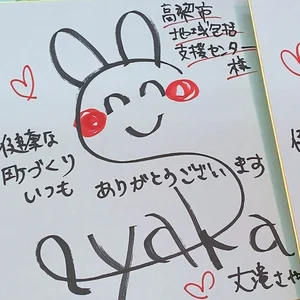 高梁市
地域包括
支援センター
様
健康な
町づくり
いつも
ありがとうございます
ayaka
大滝さや